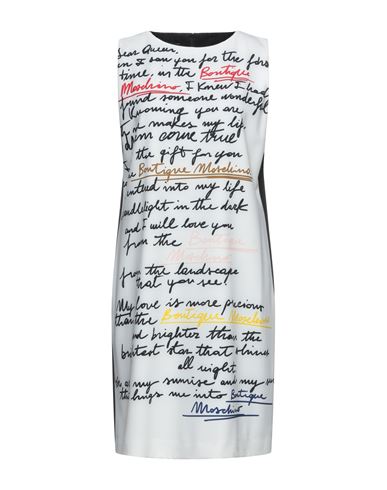 Dear Queen,
en I saw you for the firs
time, in the Boutique
Moschino, I knew I had
found someone wonderful
Knowing you are
makes my life
Dream come true
the gift for you
Boutique Moschino
into my life
candlelight in the dark
and I will love you
from the Boutique
Moschino
from the landscape
that you see!
My love is more precious
than the Boutique Moschino
and brighter than the
brightest star that shines
all night
as my sunrise and my
brings me into Boutique
Moschino